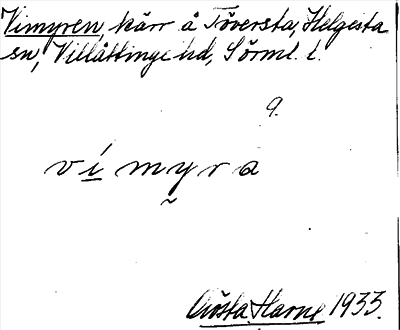 Vimyren, kärr å Töversta, Helgesta
sn, Villåttinge hd, Sörml. l.
9.
vímyra
Gösta Harne 1933.